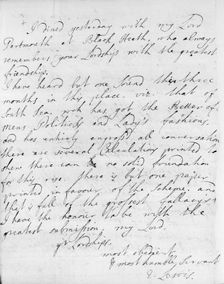 I Dined yesterday with my Lord
Portsmouth at Black Heath, who always
remembers your Lordship with the greatest
friendship.
I have heard but one Sound these three
months in this place viz. that of
South Sea, wch has got the Better of
mens Politicks and Lady's fashions,
and has entirely engrossd all conversation
there are several Calculations printed to
shew there can be no solid foundation
for this rise. there is but one paper
printed in favour of the Scheme, and
that is full of the grossest fallacys
I have the honour to be with the
greatest submission, my Lord,
yr Lordships
most obedient
& most humble Servant
E Lewis.